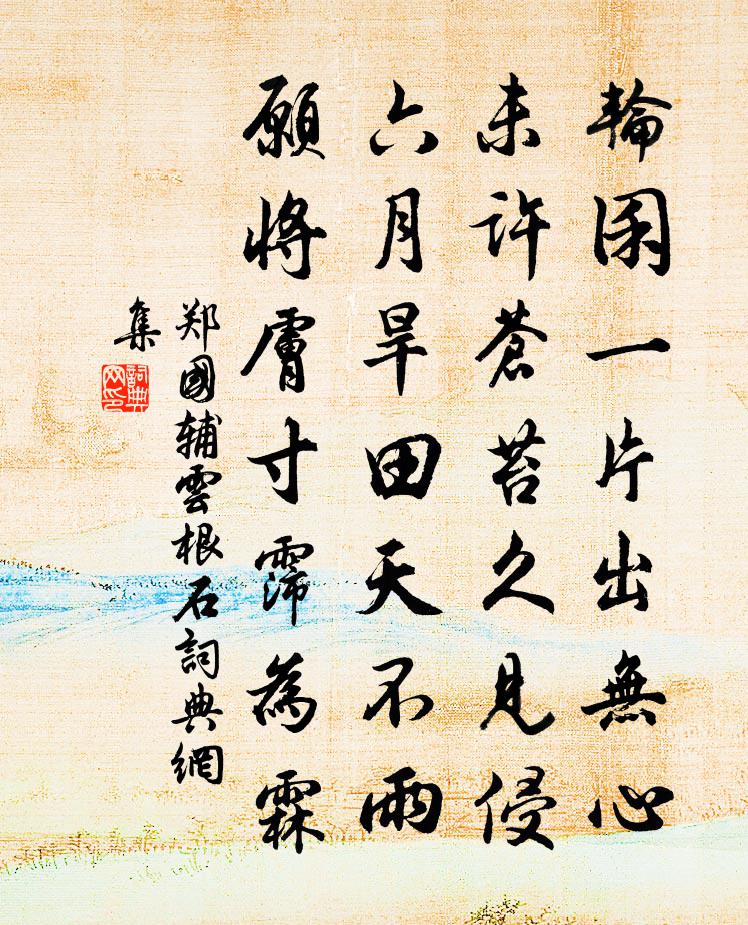 輪囷一片出無心
未許蒼苔久見侵
六月旱田天不雨
願將膚寸霈為霖
郑國辅雲根石詞典網
集
詞典网印